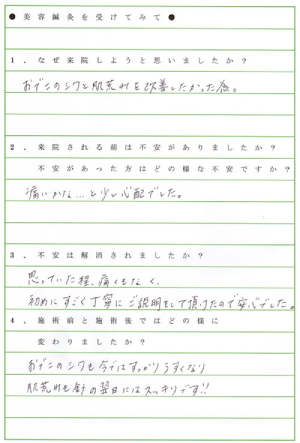 ●美容鍼灸を受けてみて●
1．なぜ来院しようと思いましたか？
おでこのシワと肌荒れを改善したかった為。
2．来院される前は不安がありましたか？
不安があった方はどの様な不安ですか？
痛いかな…と少し心配でした。
3．不安は解消されましたか？
思っていた程、痛くもなく、
初めにすごく丁寧にご説明をして頂けたので安心でした。
4．施術前と施術後ではどの様に
変わりましたか？
おでこのシワも今ではすっかりうすくなり
肌荒れも針の翌日にはスッキリです!!